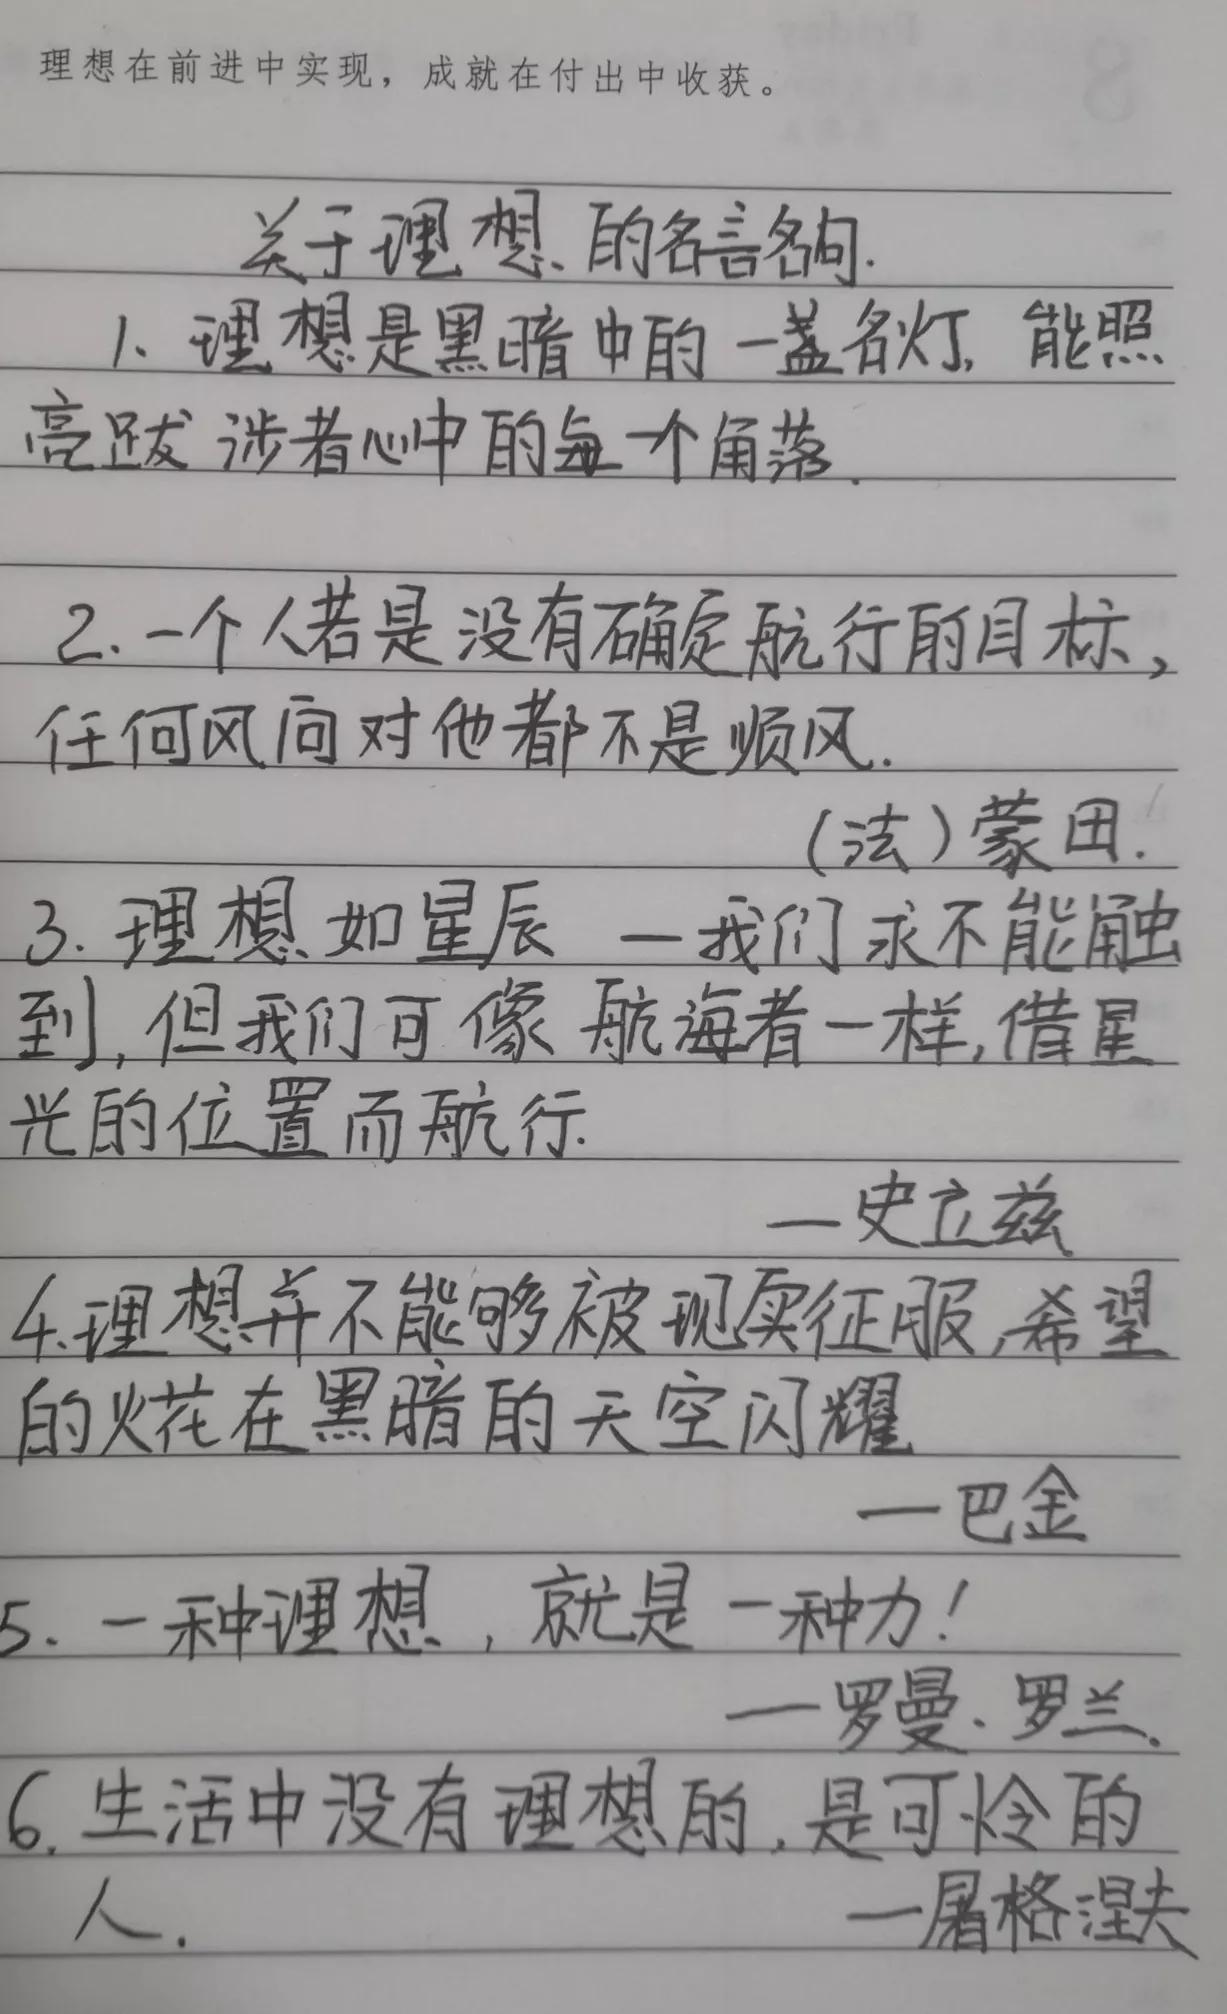 理想在前进中实现，成就在付出中收获。
关于理想的名言名句.
1、理想是黑暗中的一盏名灯，能照
亮跋涉者心中的每一个角落.
2.一个人若是没有确定航行的目标，
任何风向对他都不是顺风.
(法)蒙田.
3.理想如星辰 —我们永不能触
到，但我们可像航海者一样，借星
光的位置而航行.
—史立兹
4.理想并不能够被现实征服，希望
的火花在黑暗的天空闪耀
—巴金
5.一种理想，就是一种力！
—罗曼、罗兰.
6.生活中没有理想的，是可怜的
人.
—屠格涅夫